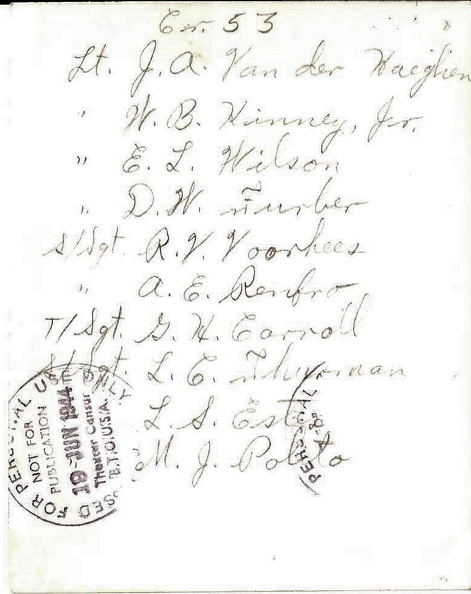 Cr. 53
Lt. J. A. Van der Haeghen
" W. B. Kinney, Jr.
" E. L. Wilson
" D. W. Furber
S/Sgt. R. V. Voorhees
" A. E. Renfro
T/Sgt. G. H. Carroll
S/Sgt. L. E. Thurman
L. S.
M. J. Polito
PERSONAL USE ONLY
NOT FOR
PUBLICATION
19 JUN 1944
Theater Censor
E.T.O.U.S.A.
PASSED FOR
PERSONAL